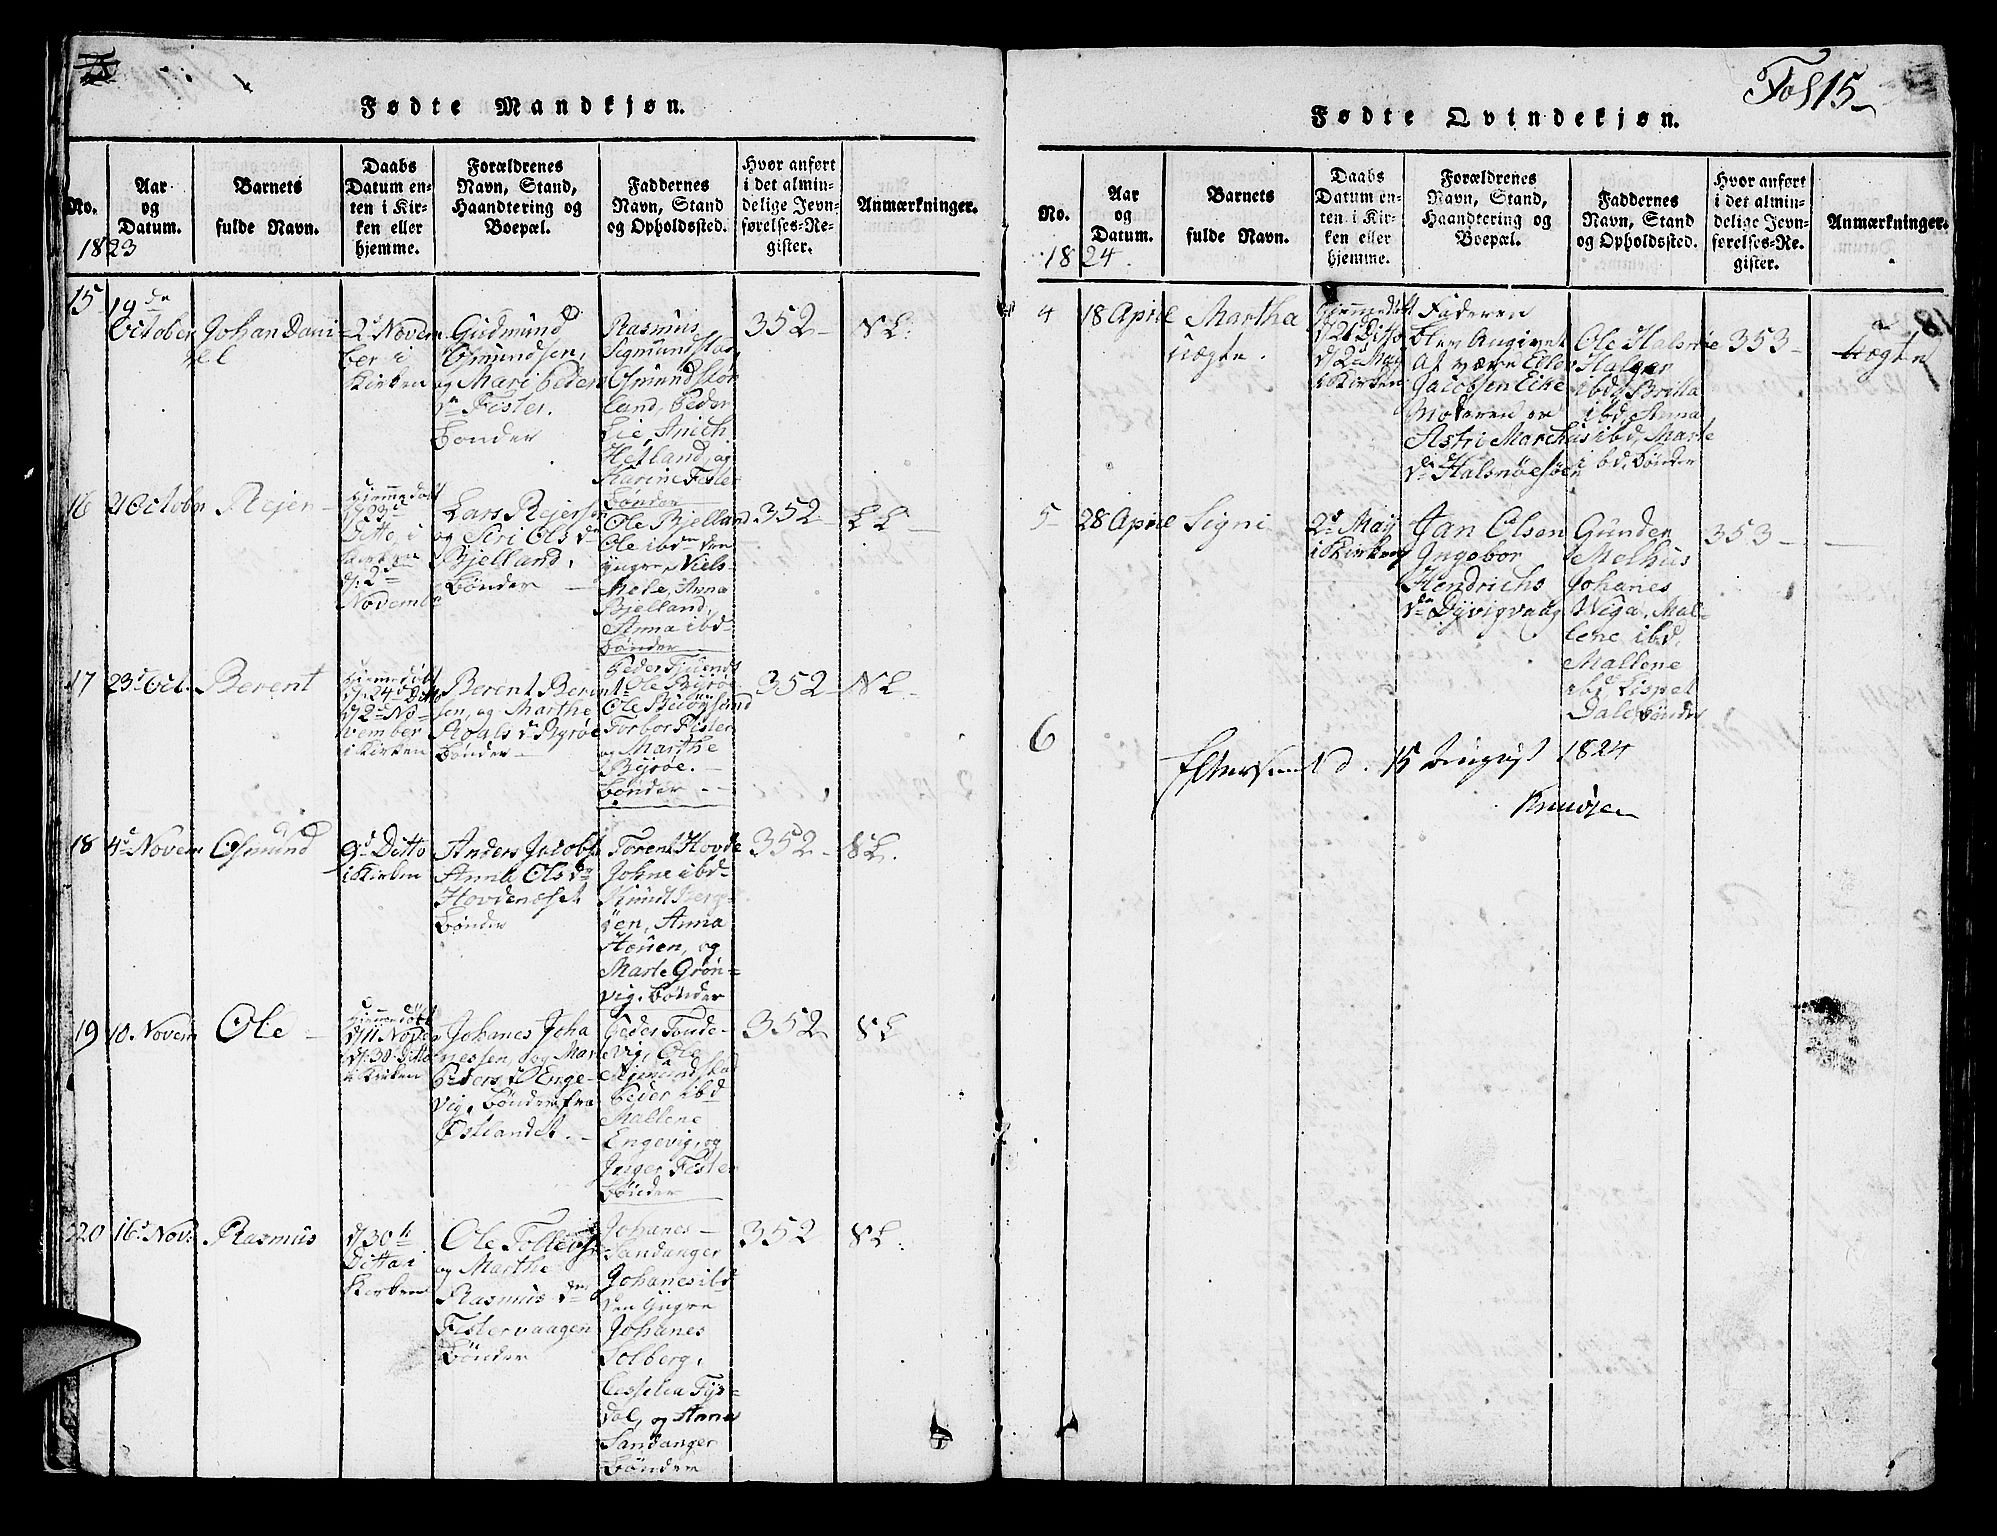 Fødte Mandkjøn.
No.
Aar
og
Datum.
Barnets
fulde Navn.
Daabs
Datum en-
ten i Kir-
ken eller
hjemme.
Forældrenes
Navn, Stand,
Haandtering og
Boepæl.
Faddernes
Navn, Stand
og Opholdssted.
Hvor anført
i det almin-
delige Jevn-
førelses-Re-
gister.
Anmærkninger.
1823
15
19de
October
Johan Dani
el
2d Novem
ber i
Kirken
Gudmund
Osmundsen,
og Mari Peders
dr Fister.
bønder
Rasmus
Sigmundstad
Osmund Stør
land, Peder
Lie, Anich
Hetland, og
Karine Fister
bønder
352
NL.
16
2 Octobr
Rejer
hjemmedøbt
Ditto, i
Kirken
d: 2den
November
Lars Rejersen
og Siri Olsdr
Bjelland,
bønder
Ole Bjelland
Ole ibdm den
yngre, Niels
Mele, Anna
Bjelland,
Anna ibd
bønder
352
LL
17
23d Oct.
Berent
hjemmedøbt
d: 24d Ditto
d: 2d No-
vember
i Kirken
Berent Berent
sen, og Marthe
Roalsdr Byrøe
bønder
Ole Byrøe
Torbor Fister
og Marthe
Byrøe.
bønder
352
NL
18
4d Novem
Osmund
9d Ditto
i Kirken
Anders Jacobs.
Anna Olsdr
Hovdenæset
bønder
Torent Hovde
Johne ibd
Knud Berg-
øen, Anna
Houen, og
Marte Grøn-
vig, bønder
352
NL.
19
10. Novem
Ole
hjemmedøbt
d: 11 Nov
d: 30 Ditto
i Kirken
Johanes Joha
nessen, og Mari
Peders d Enge-
vig, bønder fra
Østlandet.
Peder Tonde-
vig, Ole
Sigmundstad
Peder ibd
Mallene
Engevig, og
Inger Fister
bønder
352
NL
20
16d Nov.
Rasmus
d 30te
Ditto i
Kirken
Ole Tollevs.
og Marthe
Rasmus dr
Fistervaagen
bønder
Johanes
Sandanger
Johanes ibd
den yngre
Johanes
Solberg,
Cesselia Tys-
dal, og Anna
Sandanger
bønder
352
NL.
Fol 15
Fødte Qvindekjøn.
No.
Aar
og
Datum.
Barnets
fulde Navn.
Daabs
Datum en-
ten i Kir-
ken eller
hjemme.
Forældrenes
Navn, Stand,
Haandtering og
Boepæl.
Faddernes
Navn, Stand
og Opholdssted.
Hvor anført
i det almin-
delige Jevn-
førelses-Re-
gister.
Anmærkninger.
1824.
4
18 April
Martha
uægte.
hjemmedøbt
d 21 Ditto
d 2d May
i Kirken
Faderen
blev Angivet
At være Ellev
Jacobsen Eike
Moderen er
Astri Marchus
dr Halsnøesøen
Ole Halsnøe
Halgier
ibd, Britta
ibd, Anna
ibd, Marte
ibd, bønder
353
uægte
5
28 April
Signi
2d May
i Kirken
Jan Olsen
Ingebor
Hendrichs
dr Dyvigvaag
Gunder
Melhus
Johanes
Viga, Mal-
lene ibd,
Mallene
ibd Lispet
Dale bønder
353
6
Efterseet d. 15 August 1824
Knudsen